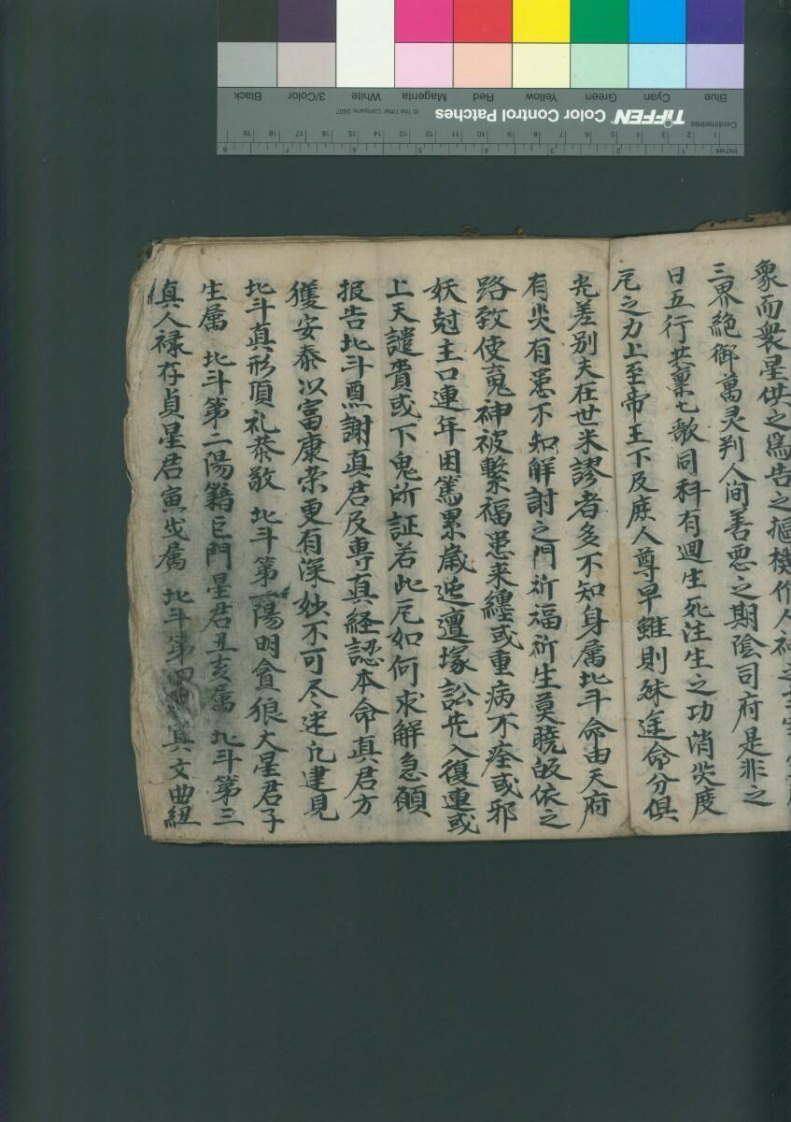 象而衆星供之為告之樞機作人神之主宰
三界絕御萬灵判人间善恶之期陰司府是非之
日五行共稟七歌同科有迴生死注生之功消災度
厄之力上至帝王下及庶人尊早雖則殊途命分俱
老差別夫在世米謬者多不知身属北斗命由天府
有災有患不知解謝之門祈福祈生莫曉皈依之
路致使䰟神被繫福患来纏或重病不痊或邪
妖尅主口連年困篤累歲迍邅塚訟先人復連或
上天譴責或下鬼所証若此厄如何求解急願
报告北斗醮謝真君及専真経認本命真君方
獲安泰以富康荣更有深妙不可尽述凢建見
北斗真形頂礼恭敬 北斗第一陽明貪狼大星君子
生属 北斗第二陽籍巨門星君丑亥属 北斗第三
真人禄存貞星君寅戌属 北斗第四 文曲紐
TIFFEN Color Control Patches
© The Tiffen Company, 2007
Centimetres
Inches
Blue Cyan Green Yellow Red Magenta White 3/Color Black
1 2 3 4 5 6 7 8 9 10 11 12 13 14 15 16 17 18 19
1 2 3 4 5 6 7 8